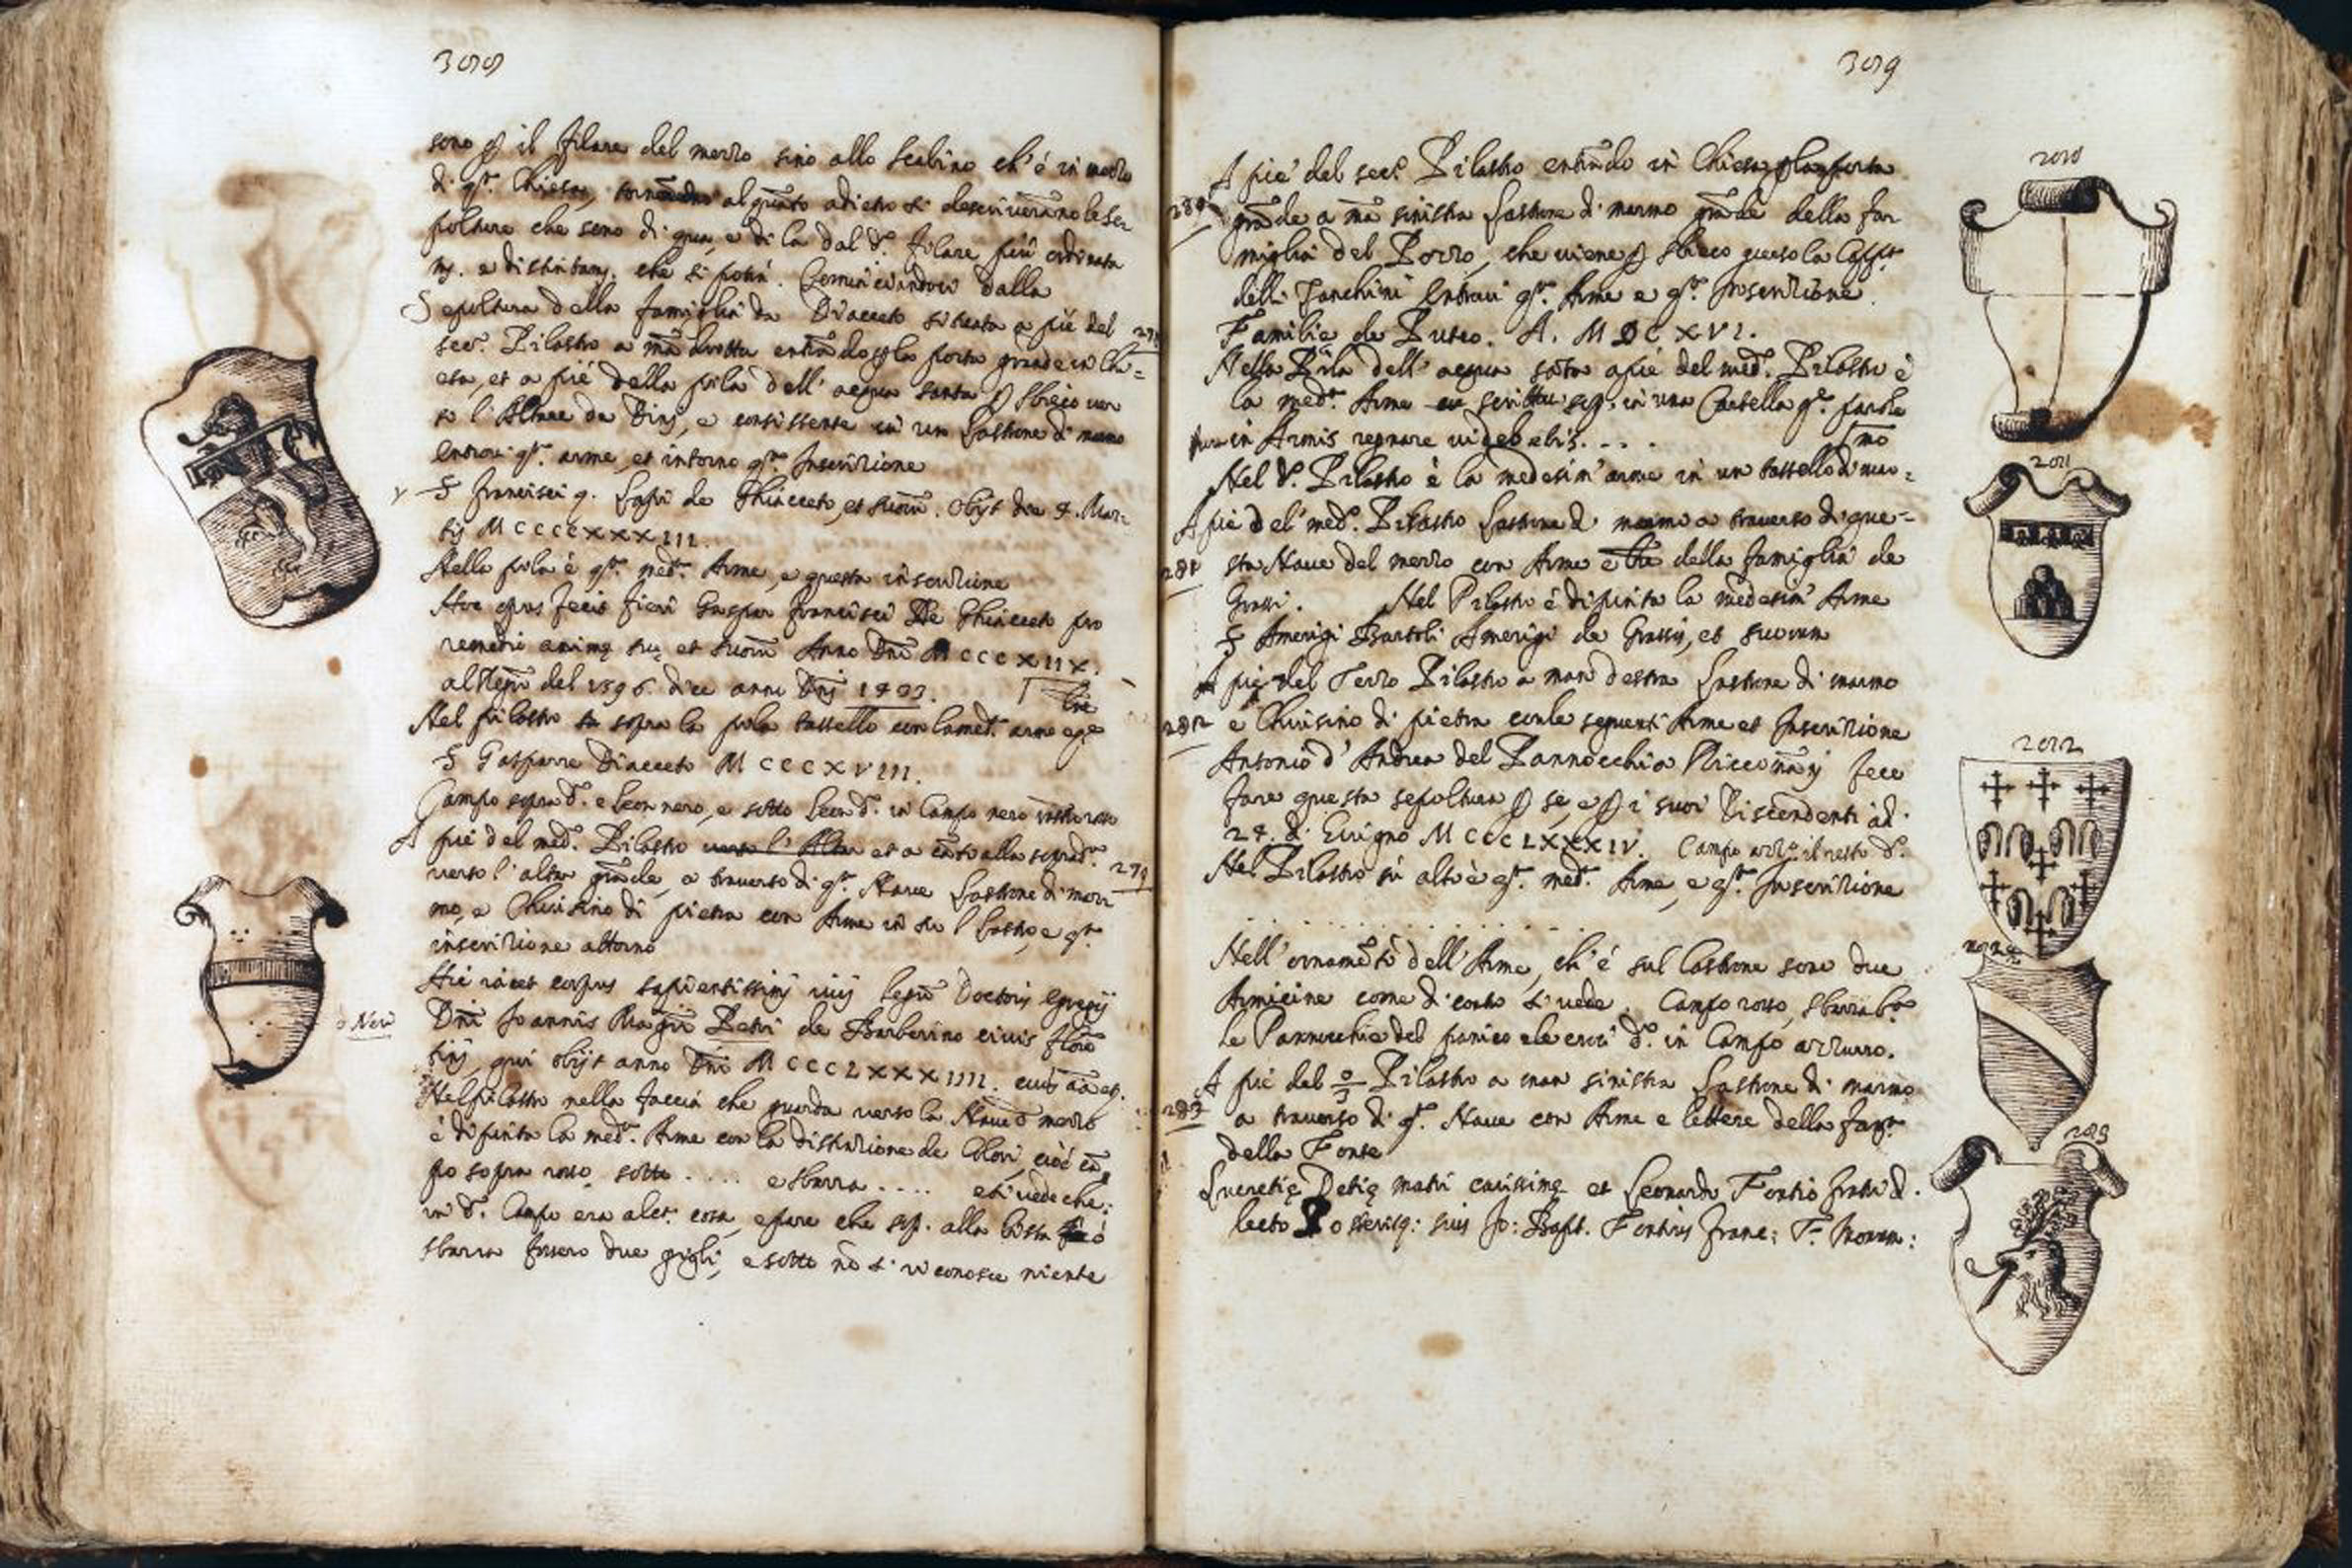 308
sono p il filare del mezzo sino allo scalino ch' é in mezzo
di qta. Chiesa, alquāto adietro si descriverāno le Se-
polture che sono di qua, e di la dal do. filare più ordinata
mte. e distintamte. che si potrà. Cominciandoci dalla
Sepoltura della famiglia da Diacceto situata a piè del
sec. Pilastro a mā dritta entrādo p la porta grande in Chi=
esa, et a piè della pila dell' acqua santa p sbieco ver
so l' Altare de Dini, e consistente in un Lastrone di marmo
entrovi qta. arme, et intorno qta. Inscrizione
S Francisci q. Lapi de Ghiacceto, et suoru. Obijt die 4. Mar-
tij MCCCCXXXIII.
Nella pila è qta. meda. Arme, e questa inscrizione
Hoc opus fecit fieri Gaspar Francisci De Ghiacceto pro
remedio animę suę et suorū Anno Dnī MCCCXIIX.
del 1596. dice anni Dnj 1403.
Nel pilastro sopra la pila tassello con la meda. arme e
S Gasparre Diacceto MCCCXVIII.
Campo sopra do. e leon nero, e sotto leon do. in Campo nero
A piè del med. Pilastro verso l' Altar et a cāto alla soprada.
verso l' altar grāde, a traverso di qta. Nave Lastrone di mar
mo, e Chiusino di pietra con Arme in su l lastro, e qta.
inscrizione attorno
Hic iacet corpus sapientissimj virj legū Doctoris egregij
Dnī Joannis Magrī Petri de Barberino civis Florē
tinj, qui obijt anno Dnī MCCCLXXXIIII. cuius
Nel pilastro nella faccia che guarda verso la Nave d mezzo
è dipinta la meda. Arme con la distinzione de Colori, cioè cā
po sopra rosso, sotto .... e sbarra .... e si vede che
in do. Campo era alcta. cosa, e pare che sop. alla lista ò
sbarra fossero due gigli, e sotto nō si riconosce niente
279
o Neri
309
A piè del sec. Pilastro entrādo in Chiesa p la porta
280
grāde a mā sinistra Lastrone di marmo grāde della fa-
miglia del Pozzo, che viene p sbieco verso la Cappa.
delli Zanchini entrovi qta. Arme e qta. Inscrizione.
Familię de Puteo. A. MDCXVI.
Nella Pila dell' acqua sāta a piè del med. Pilastro è
la meda. Arme scritta sop. in una Cartella qte. parole
in Armis regnare videbebis. . . .
Nel do. Pilastro è la medesim' arme in un tassello di mar=
mo
A piè del med. Pilastro Lastrone di marmo a traverso di que=
281
sta Nave del mezzo con Arme e lre della famiglia de
Grassi. Nel Pilastro è dipinta la medesim' Arme
S Amerigi Bartoli Amerigi de Grassis, et suorum
A piè del Terzo Pilastro a man destra Lastrone di marmo
282
e Chiusino di pietra con le seguenti Arme et Inscrizione
Antonio d' Andrea del Pannocchia Riccomāni fece
fare questa sepoltura p sè, e p i suoi Discendenti ad.
24. di Giugno MCCCLXXXIV. Campo azzo. il resto do.
Nel Pilastro sù alto è qta. meda. Arme, e qta. Inscrizione
. . . . . . . . . . . . .
Nell' ornamēto dell' Arme, ch' é sul lastrone sono due
Armicine come di conto si vede. Campo rosso, sbarra ba.
le Pannocchie del panico e le croci do. in Campo azzurro.
A piè del 3o Pilastro a man sinistra Lastrone di marmo
283
a traverso di qta. Nave con Arme e lettere della Famа.
della Fonte
Lucretię Detię matri carissimę et Leonardo Fontio fratri d.
lecto Posterisq: suis Jo: Bapt. Fontius Franc: F. Morum:
280
281
282
282
283